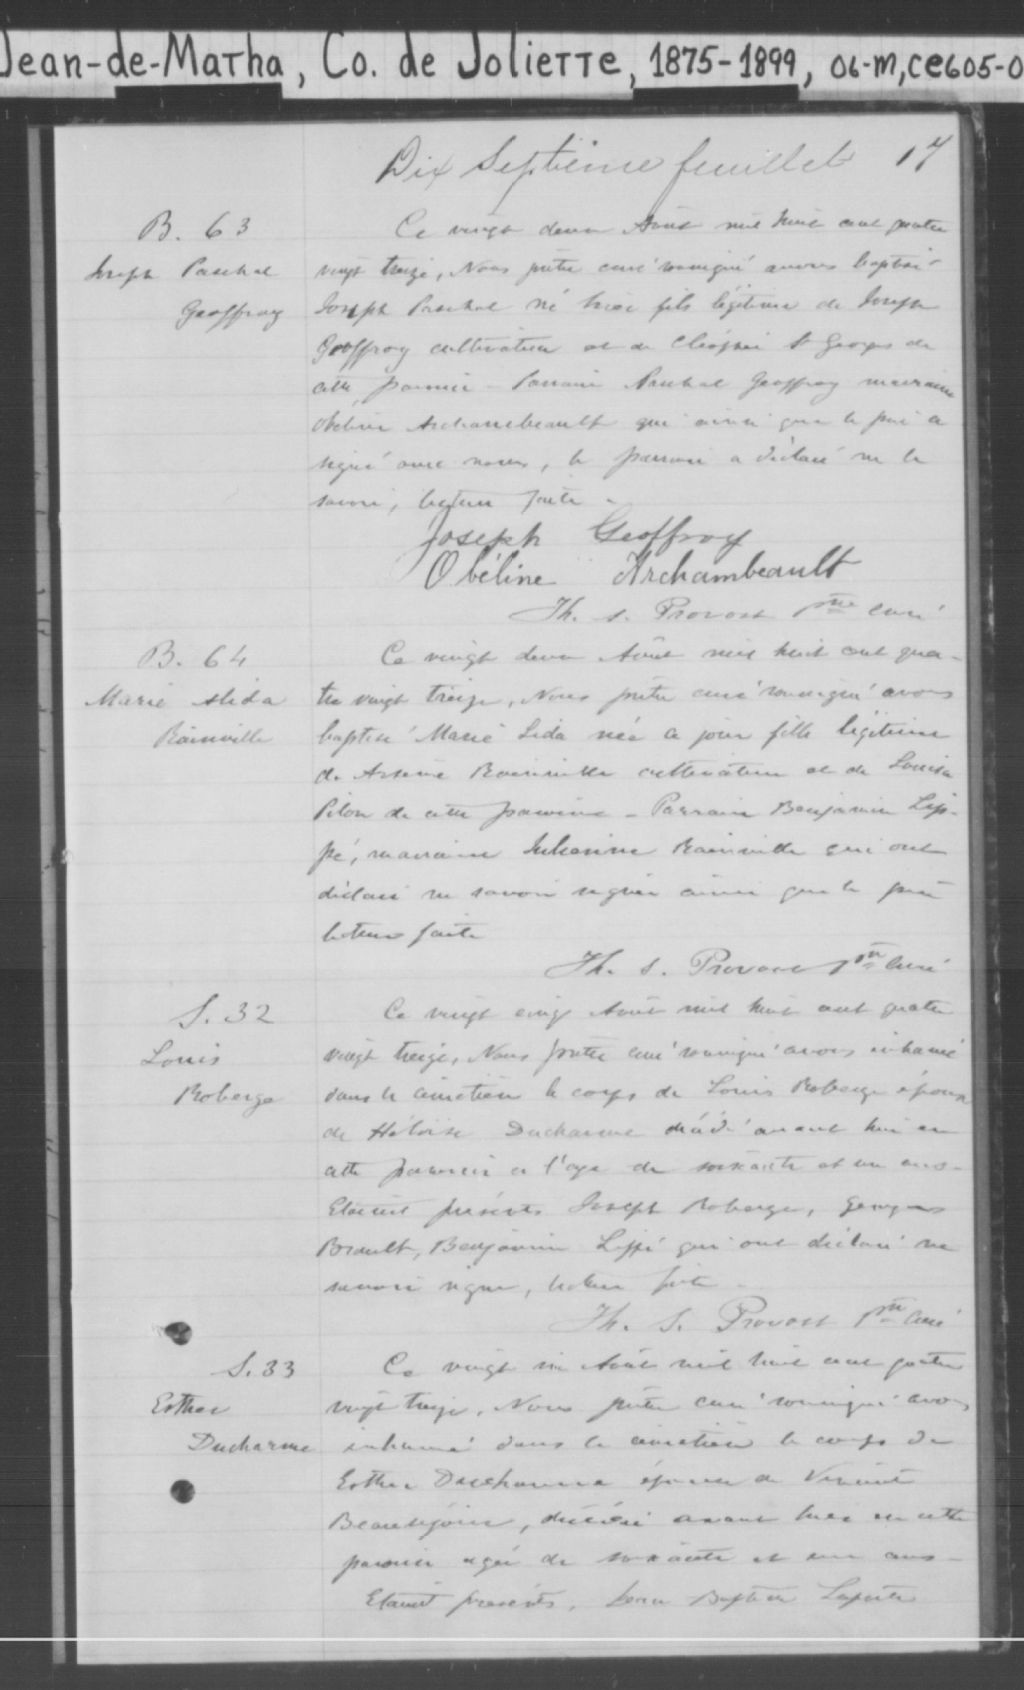 Jean-de-Matha, Co. de Joliette, 1875-1899, 06-M, CE605-0
Dix Septième feuillet 17
B. 63
Joseph Paschal
Geoffroy
Ce vingt deux Août mil huit cent quatre
vingt treize, Nous prêtre curé soussigné avons baptisé
Joseph Paschal né hier fils légitime de Joseph
Geoffroy cultivateur et de Cléophée St Georges de
cette paroisse - Parrain Paschal Geoffroy marraine
Obéline Archambeault qui ainsi que le père a
signé avec nous, le parrain a déclaré ne le
savoir, lecture faite.
Joseph Geoffroy
Obéline Archambeault
Th. S. Provost Ptre Curé
B. 64
Marie Alida
Rainville
Ce vingt deux Août mil huit cent qua-
tre vingt treize, Nous prêtre curé soussigné avons
baptisé Marie Lida née ce jour fille légitime
de Arsène Rainville cultivateur et de Louisa
Pilon de cette paroisse - Parrain Benjamin Lip-
pé, marraine Julienne Rainville qui ont
déclaré ne savoir signer ainsi que le père
lecture faite
Th. S. Provost Ptre Curé
S. 32
Louis
Roberge
Ce vingt cinq Août mil huit cent quatre
vingt treize, Nous prêtre curé soussigné avons inhumé
dans le cimetière le corps de Louis Roberge époux
de Héloïse Ducharme décédé avant hier en
cette paroisse à l'age de soixante et un ans -
Etaient présents Joseph Roberge, Georges
Brault, Benjamin Lippé qui ont déclaré ne
savoir signer, lecture faite -
Th. S. Provost Ptre Curé
S. 33
Esther
Ducharme
Ce vingt six Août mil huit cent quatre
vingt treize, Nous prêtre curé soussigné avons
inhumé dans le cimetière le corps de
Esther Ducharme épouse de
Beauséjour, décédée avant hier en cette
paroisse agée de soixante et un ans -
Etaient présents, Jean Baptiste Laporte